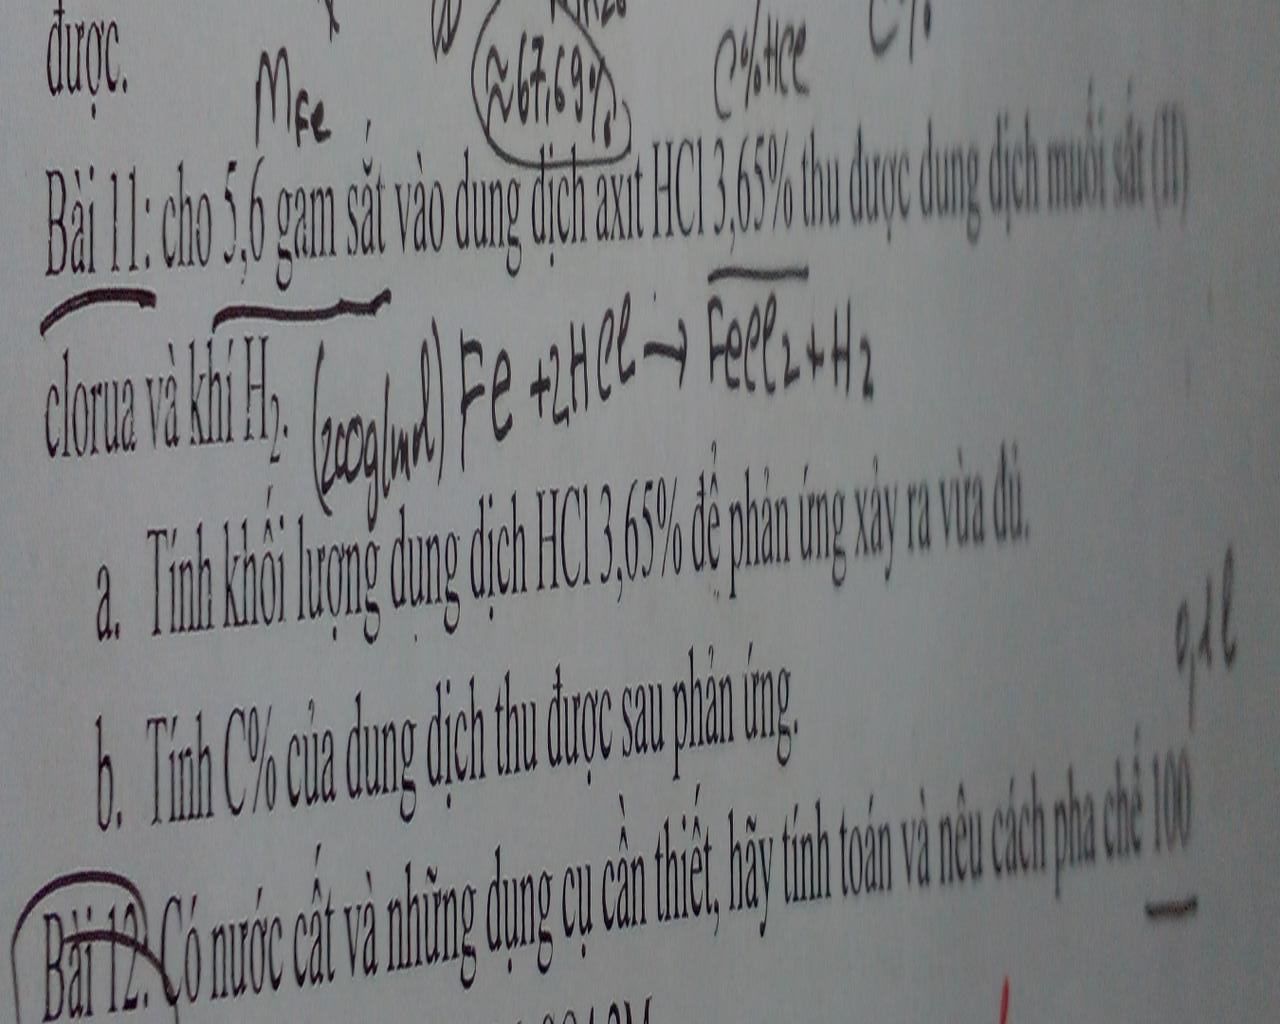 được.
MFe
≈67,69%
C%HCl
C%
Bài 11: cho 5,6 gam sắt vào dung dịch axit HCl 3,65% thu được dung dịch muối sắt (II)
clorua và khí H2. (200g/mol) Fe + 2HCl → FeCl2 + H2
a. Tính khối lượng dung dịch HCl 3,65% để phản ứng xảy ra vừa đủ.
b. Tính C% của dung dịch thu được sau phản ứng.
0,1l
Bài 12. Có nước cất và những dụng cụ cần thiết, hãy tính toán và nêu cách pha chế 100